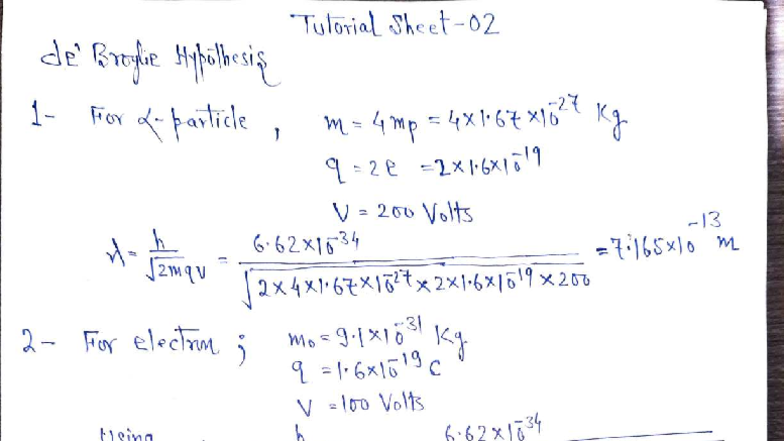 Tutorial Sheet-02
de' Broglie Hypothesis
1- For α-particle , m = 4mp = 4×1.67×10^-27 Kg
q = 2e = 2×1.6×10^-19
V = 200 Volts
λ = h/√2mqv = 6.62×10^-34/√2×4×1.67×10^-27×2×1.6×10^-19×200 = 7.165×10^-13 m
2- For electron ; m₀ = 9.1×10^-31 Kg
q = 1.6×10^-19 C
V = 100 Volts
Using h 6.62×10^-34